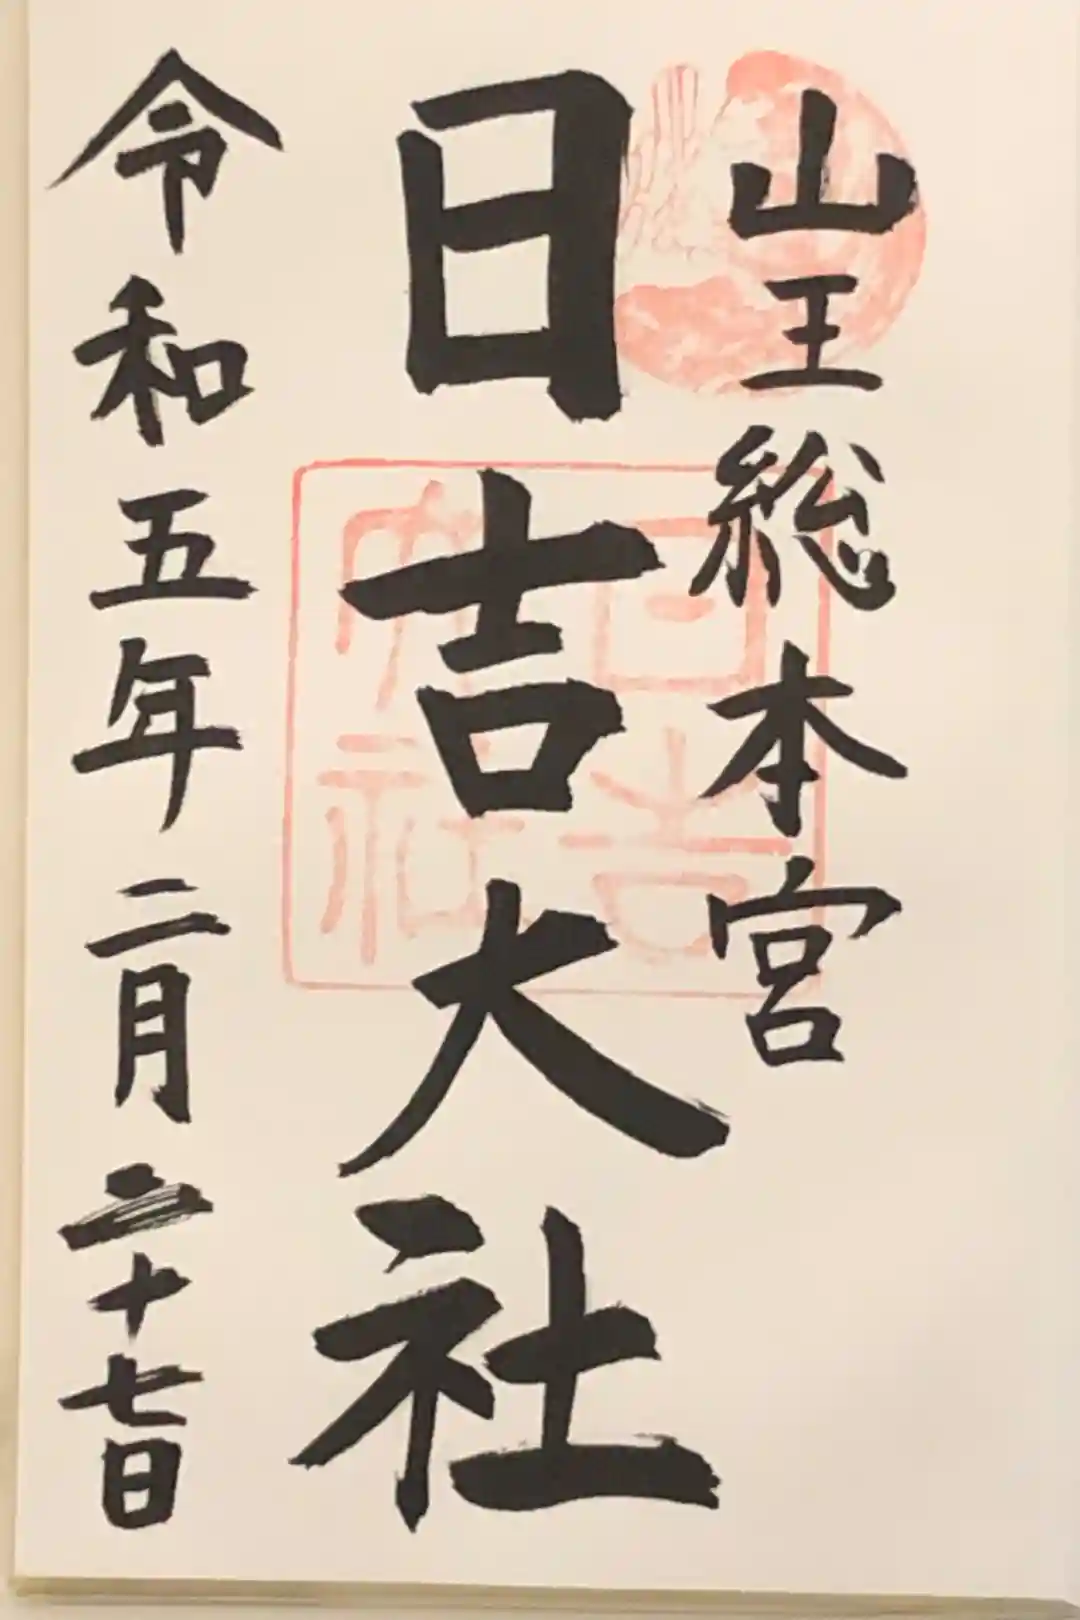 山王総本宮
日吉大社
令和五年二月二十七日
日吉
大社